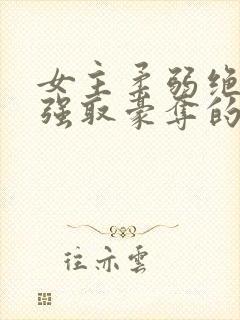 女主柔弱绝
强取豪夺的
往亦雲